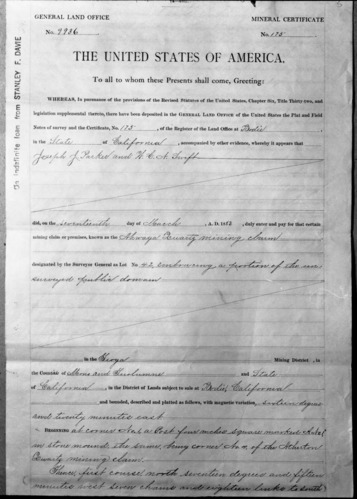 On indefinite loan from STANLEY F. DAVIE
GENERAL LAND OFFICE
MINERAL CERTIFICATE
No.
No. 175
THE UNITED STATES OF AMERICA.
To all to whom these Presents shall come, Greeting:
WHEREAS, In pursuance of the provisions of the Revised Statutes of the United States, Chapter Six, Title Thirty-two, and
legislation supplemental thereto, there have been deposited in the GENERAL LAND OFFICE of the United States the Plat and Field
Notes of survey and the Certificate, No. 175, of the Register of the Land Office at Bodie
in the State of California, accompanied by other evidence, whereby it appears that
Joseph J. Parker and H. C. N. Swift
did, on the seventeenth day of March, A. D. 1883, duly enter and pay for that certain
mining claim or premises, known as the Quartz mining claim
designated by the Surveyor General as Lot No 42, embracing a portion of the un
surveyed public domain
in the Tioga Mining District, in
the Counties of Mono and Tuolumne and State
of California, in the District of Lands subject to sale at Bodie, California
and bounded, described and platted as follows, with magnetic variation, sixteen degrees
and twenty minutes east
BEGINNING at corner No 1 a Post four inches square marked
in stone mound the same being corner No 4 of the
Quartz mining claim
Thence, first course, north seventeen degrees and fifteen
minutes west seven chains and eighteen links to